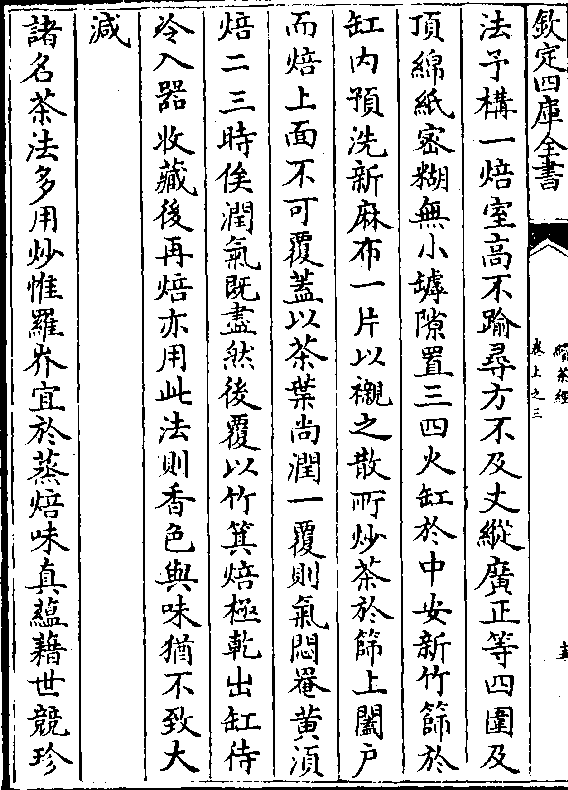 欽定四庫全書
續茶經
卷上之三
法予構一焙室高不踰尋方不及丈縱廣正等四圍及
頂綿紙密糊無小罅隙置三四火缸於中安新竹篩於
缸内預洗新麻布一片以襯之散所炒茶於篩上闔户
而焙上面不可覆葢以茶葉尚潤一覆則氣悶罨黄湏
焙二三時俟潤氣既盡然後覆以竹箕焙極乾出缸待
冷入器收藏後再焙亦用此法則香色與味猶不致大
減
諸名茶法多用炒惟羅岕宜於蒸焙味真藴藉世競珍